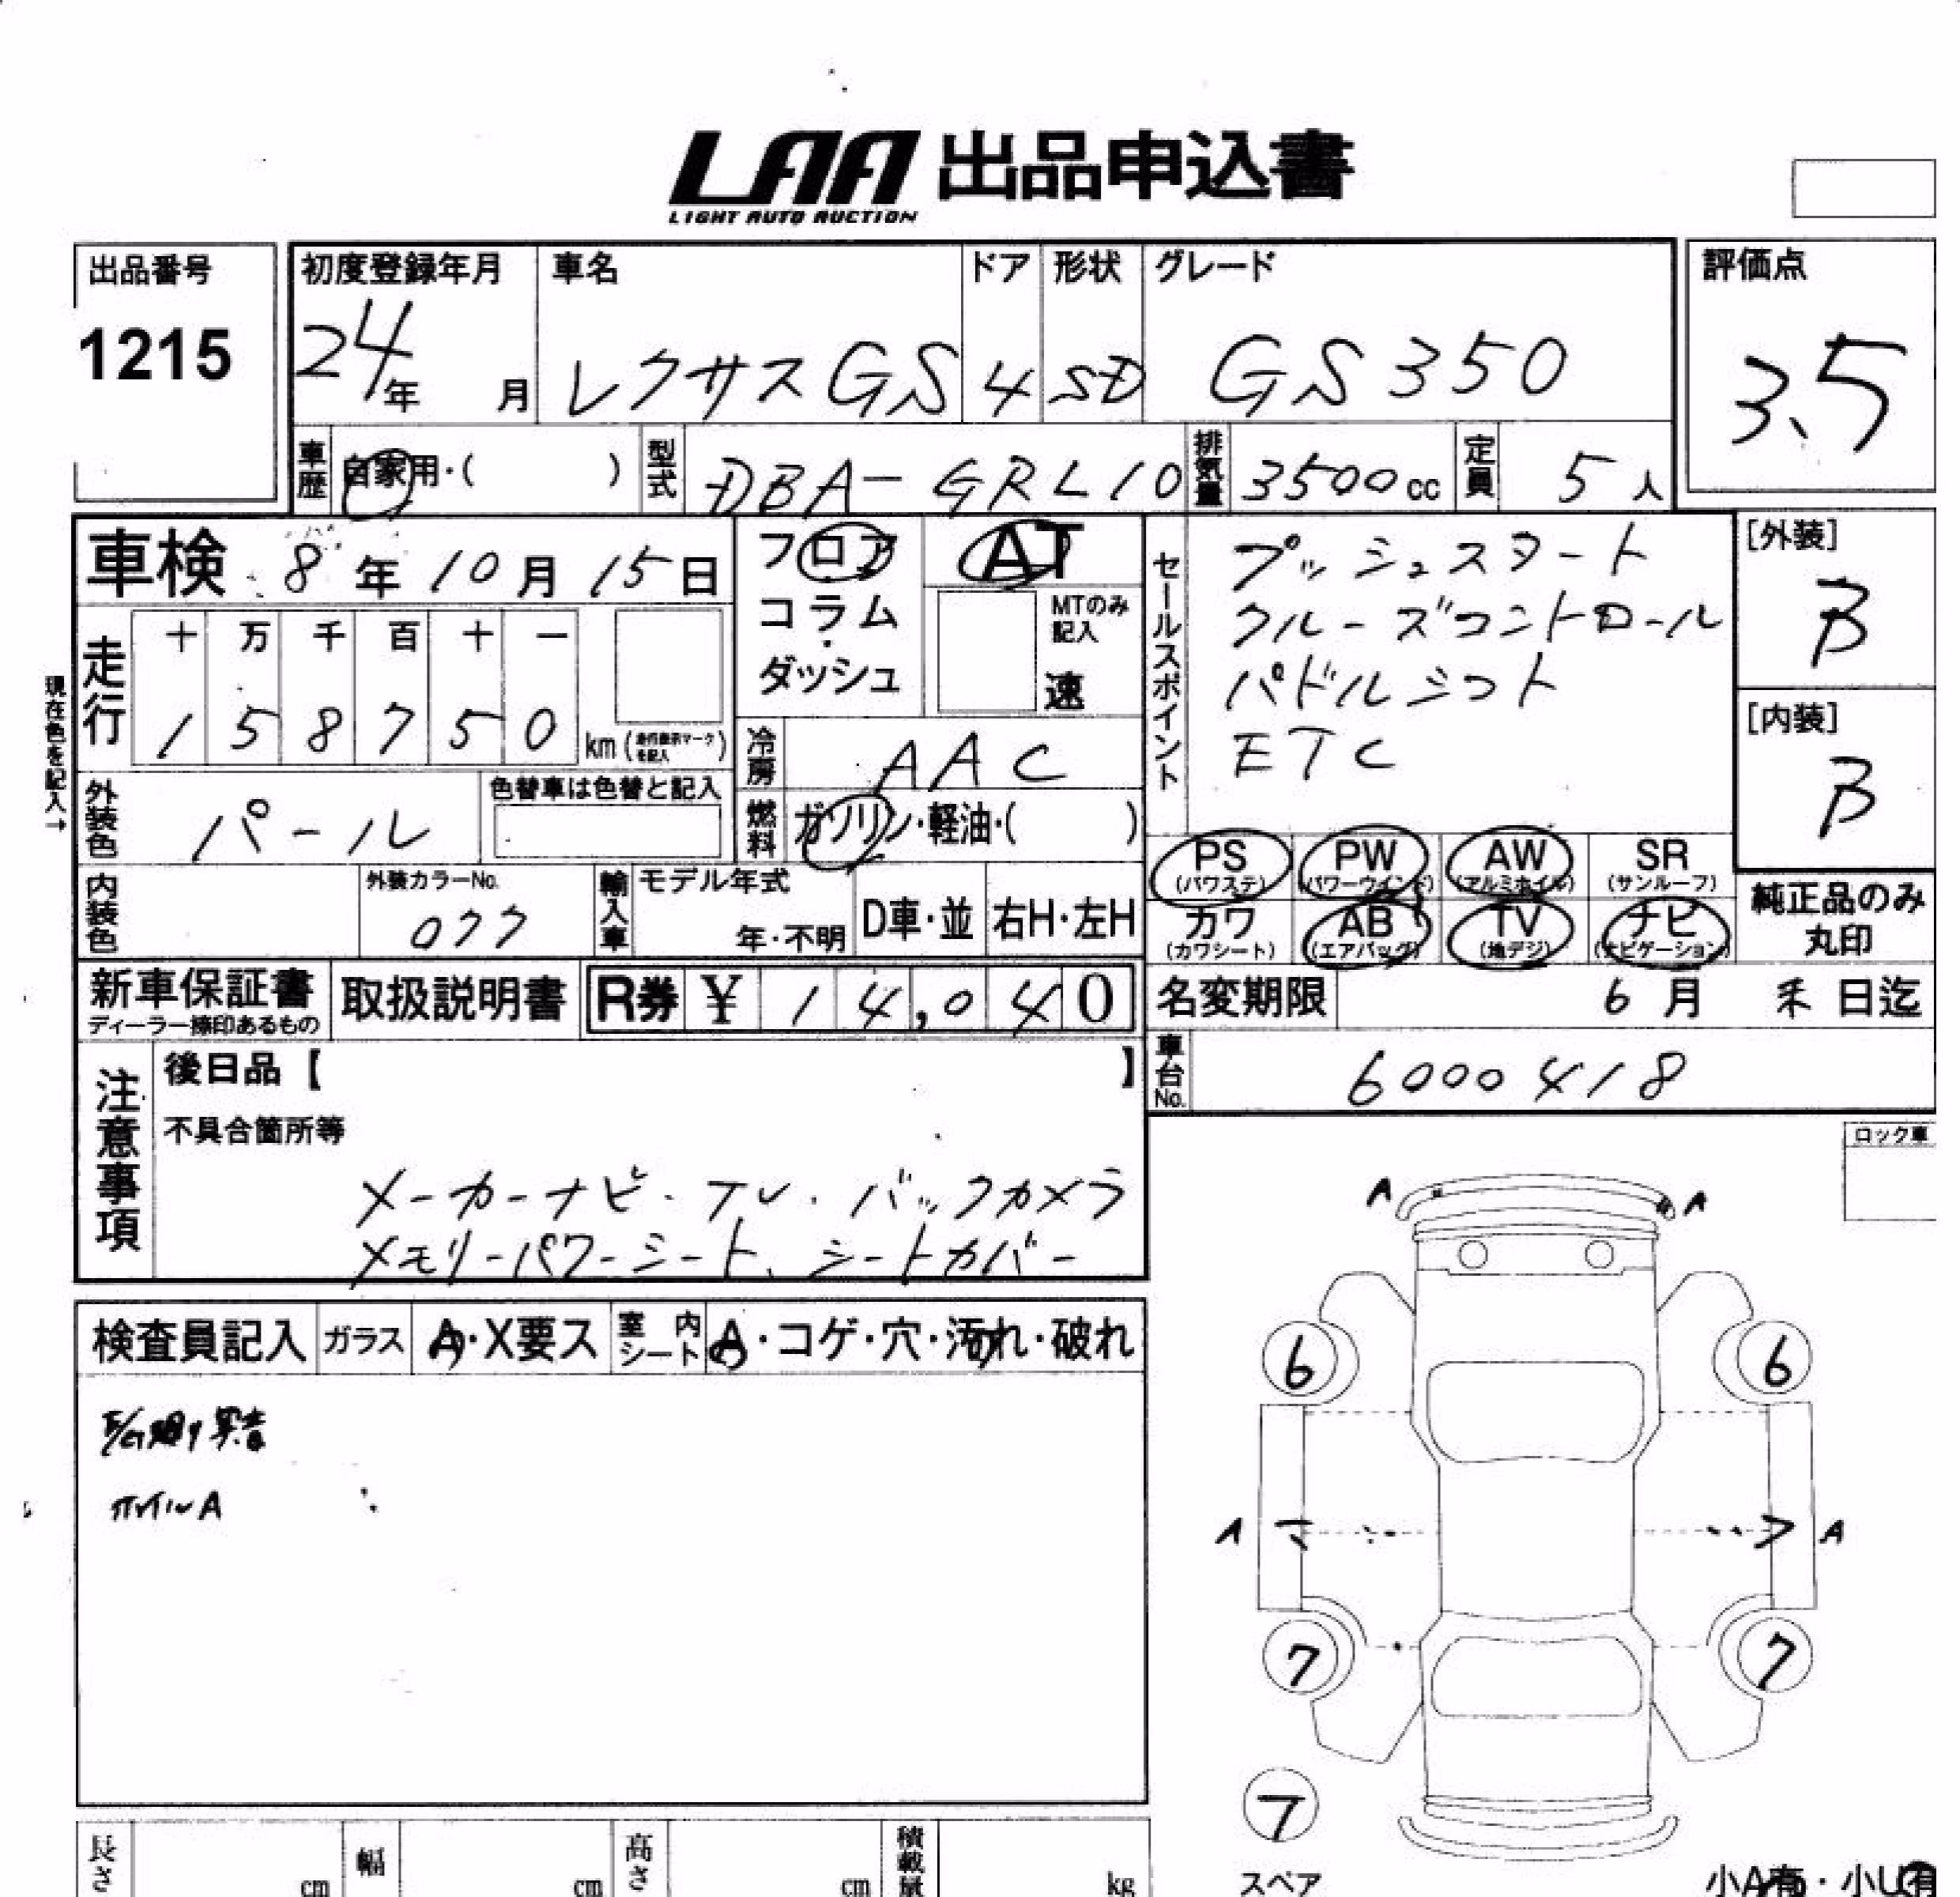 LAA 出品申込書
LIGHT AUTO AUCTION
出品番号
1215
初度登録年月
24年 月
車名
レクサスGS
ドア
4
形状
SD
グレード
GS350
評価点
3.5
車歴
自家用・( )
型式
DBA-GRL10
排気量
3500cc
定員
5人
車検 8年10月15日
フロア
コラム
ダッシュ
AT
MTのみ
記入
速
セールスポイント
プッシュスタート
クルーズコントロール
パドルシフト
ETC
[外装]
B
[内装]
B
現在色を記入→
走行
十 万 千 百 十 一
1 5 8 7 5 0 km
冷房
AAC
外装色
パール
色替車は色替と記入
燃料
ガソリン・軽油・( )
PS (パワステ)
PW (パワーウインド)
AW (アルミホイル)
SR (サンルーフ)
カワ (カワシート)
AB (エアバッグ)
TV (地デジ)
ナビ (ナビゲーション)
純正品のみ
丸印
内装色
外装カラーNo.
077
輸入車
モデル年式
年・不明
D車・並
右H・左H
新車保証書
ディーラー捺印あるもの
取扱説明書
R券 ¥ 14,040
名変期限 6月 末日迄
車台No.
6000418
注意事項
後日品【 】
不具合箇所等
メーカーナビ・TV・バックカメラ
メモリーパワーシート、シートカバー
ロック車
検査員記入
ガラス
A・X要ス
室内シート
A・コゲ・穴・汚れ・破れ
ホイルA
A A
6 6
A A
7 7
7
スペア
長さ cm
幅 cm
高さ cm
積載量 kg
小A有・小U有